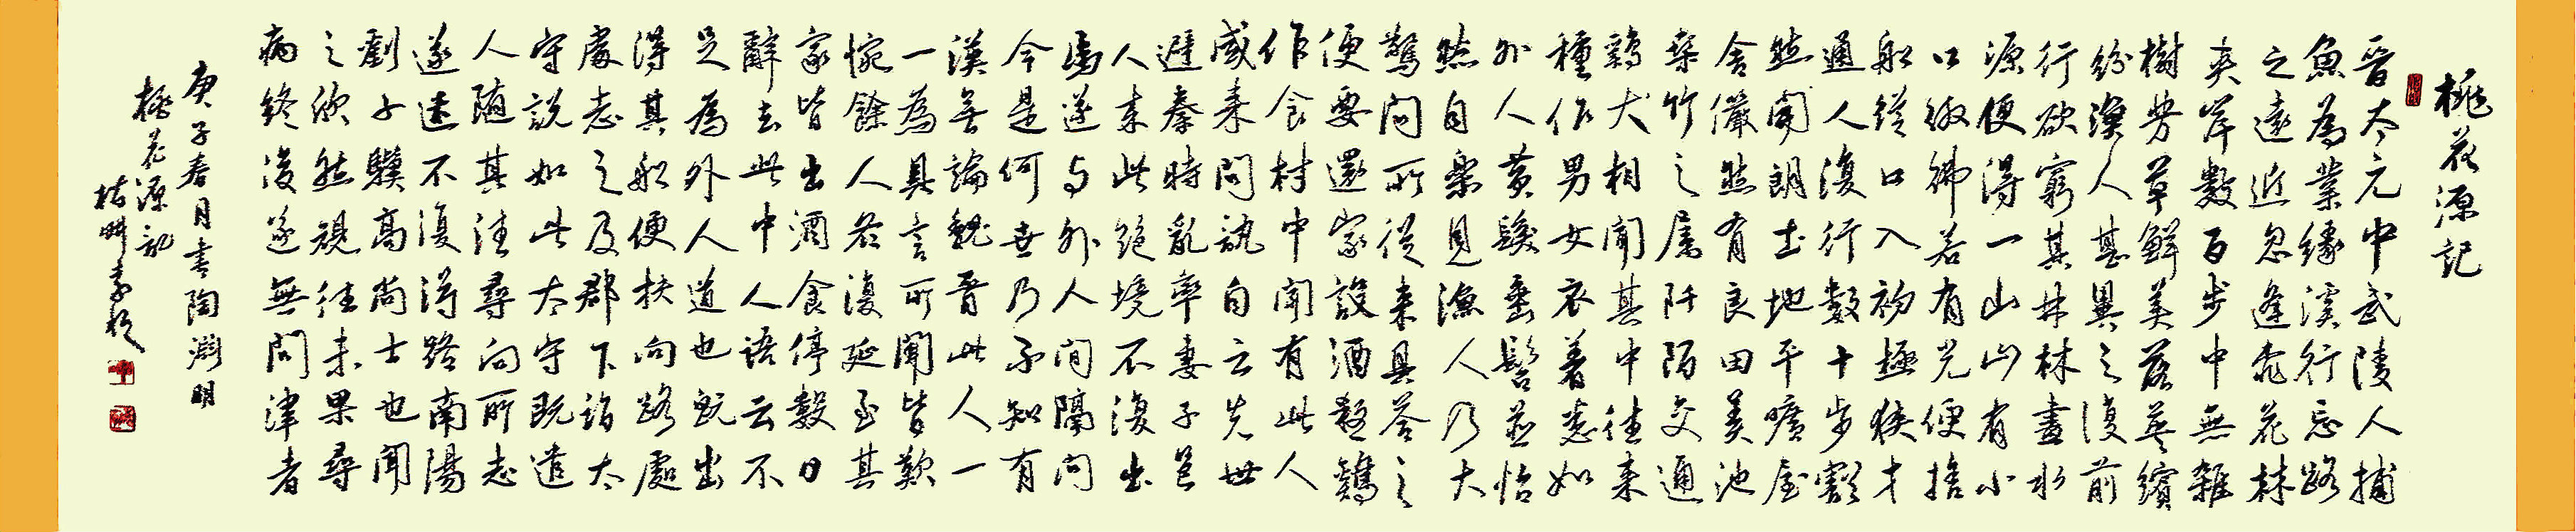 桃花源記
晋太元中武陵人捕
魚為業緣溪行忘路
之遠近忽逢桃花林
夾岸數百步中無雜
樹芳草鮮美落英繽
紛漁人甚異之復前
行欲窮其林林盡水
源便得一山山有小
口彷彿若有光便捨
船從口入初極狹才
通人復行數十步豁
然開朗土地平曠屋
舍儼然有良田美池
桑竹之屬阡陌交通
鷄犬相聞其中往来
種作男女衣着悉如
外人黄髮垂髫並怡
然自樂見漁人乃大
驚問所從来具答之
便要還家設酒殺鷄
作食村中聞有此人
咸来問訊自云先世
避秦時亂率妻子邑
人来此絕境不復出
焉遂与外人間隔問
今是何世乃不知有
漢無論魏晋此人一
一為具言所聞皆歎
惋餘人各復延至其
家皆出酒食停數日
辭去此中人語云不
足為外人道也既出
得其船便扶向路處
處志之及郡下詣太
守說如此太守既遣
人随其往尋向所志
遂迷不復得路南陽
劉子驥高尚士也聞
之欣然規往未果尋
病終後遂無問津者
庚子春月書陶淵明
桃花源記